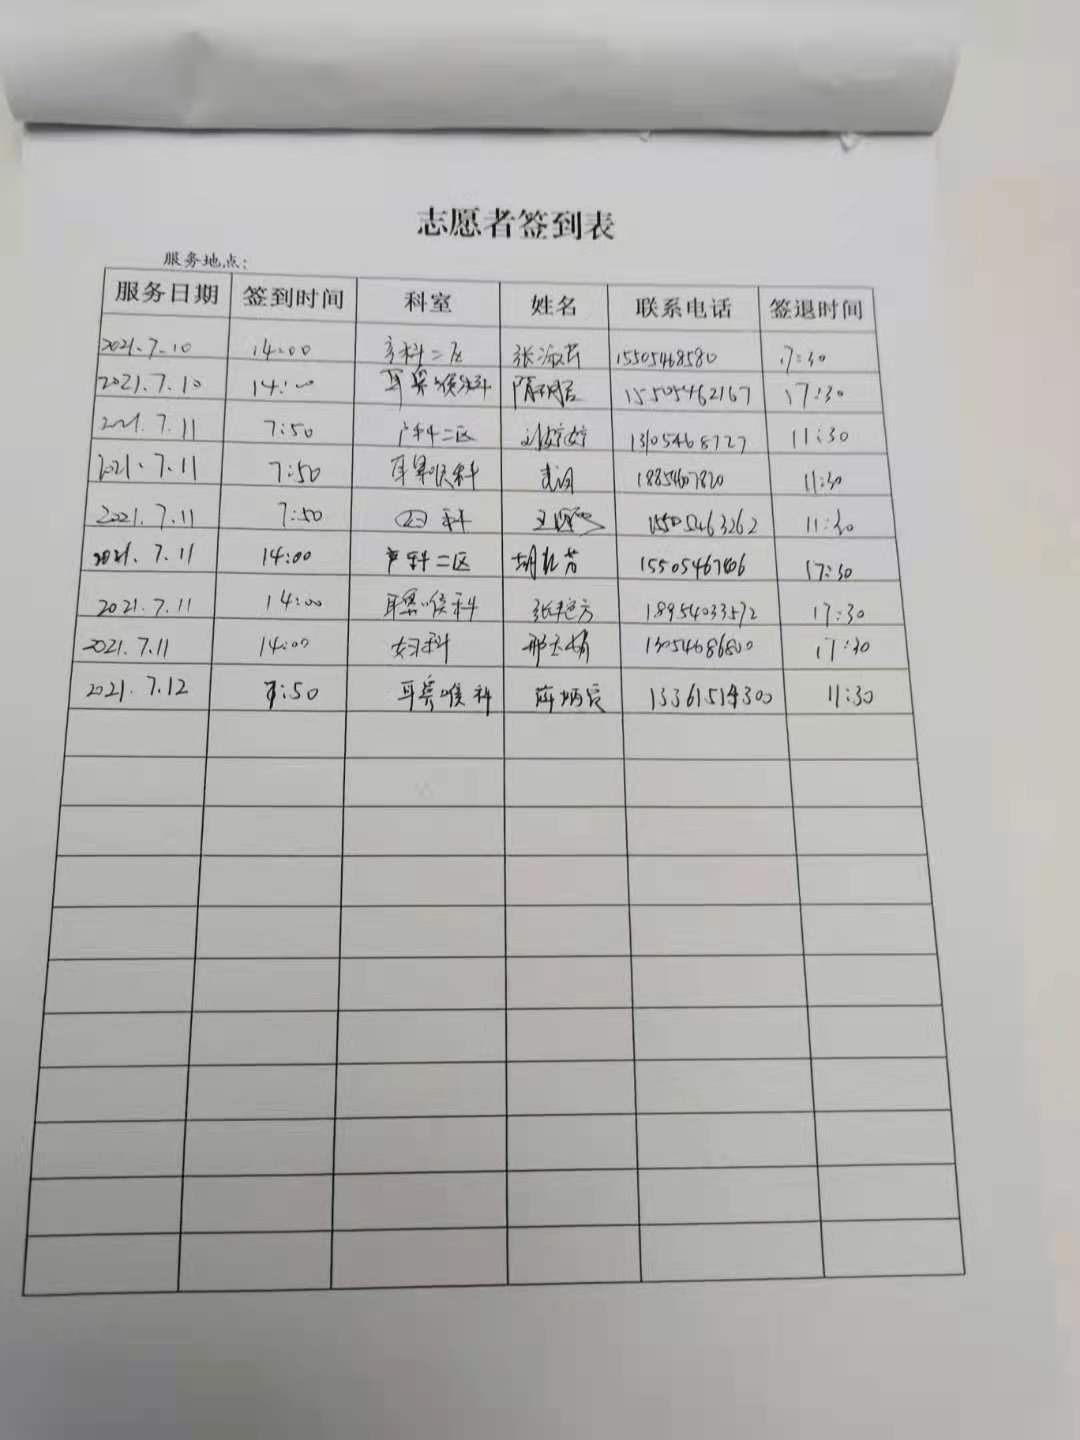 志愿者签到表
服务地点：
服务日期 签到时间 科室 姓名 联系电话 签退时间
2021.7.10 14:00 产科二区 张淑芹 15505468580 17:30
2021.7.10 14:00 耳鼻喉科 15505462167 17:30
2021.7.11 7:50 产科二区 刘婷婷 13105468727 11:30
2021.7.11 7:50 耳鼻喉科 11:30
2021.7.11 7:50 妇科 15505463262 11:30
2021.7.11 14:00 产科二区 17:30
2021.7.11 14:00 耳鼻喉科 18954033572 17:30
2021.7.11 14:00 妇科 13054686800 17:30
2021.7.12 7:50 耳鼻喉科 薛炳辰 13361514300 11:30